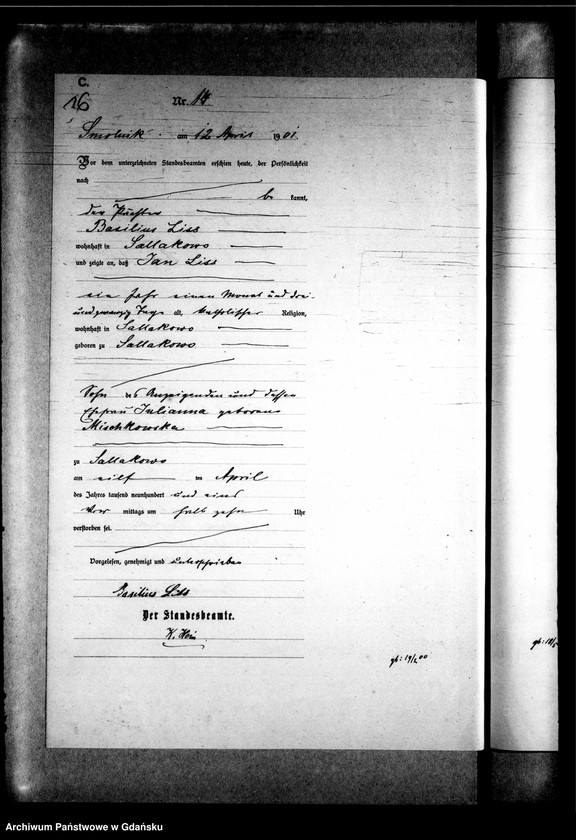 C.
16
Nr. 14
Smolnik am 12 April 1901
Vor dem unterzeichneten Standesbeamten erschien heute, der Persönlichkeit
nach
be kannt,
der Pächter
Basilius Liss
wohnhaft in Sallakowo
und zeigte an, daß Jan Liss
ein Jahr einen Monat und drei-
undzwanzig Tage alt, katholischer Religion,
wohnhaft in Sallakowo
geboren zu Sallakowo
Sohn des Anzeigenden und dessen
Ehefrau Julianna geborene
Mischkowska
zu Sallakowo
am eilf ten April
des Jahres tausend neunhundert und eins
Vor mittags um halb zehn Uhr
verstorben sei.
Vorgelesen, genehmigt und unterschrieben
Basilius Liss
Der Standesbeamte.
K. Hein
gb: 19/2 00
gb: 18/5
Archiwum Państwowe w Gdańsku